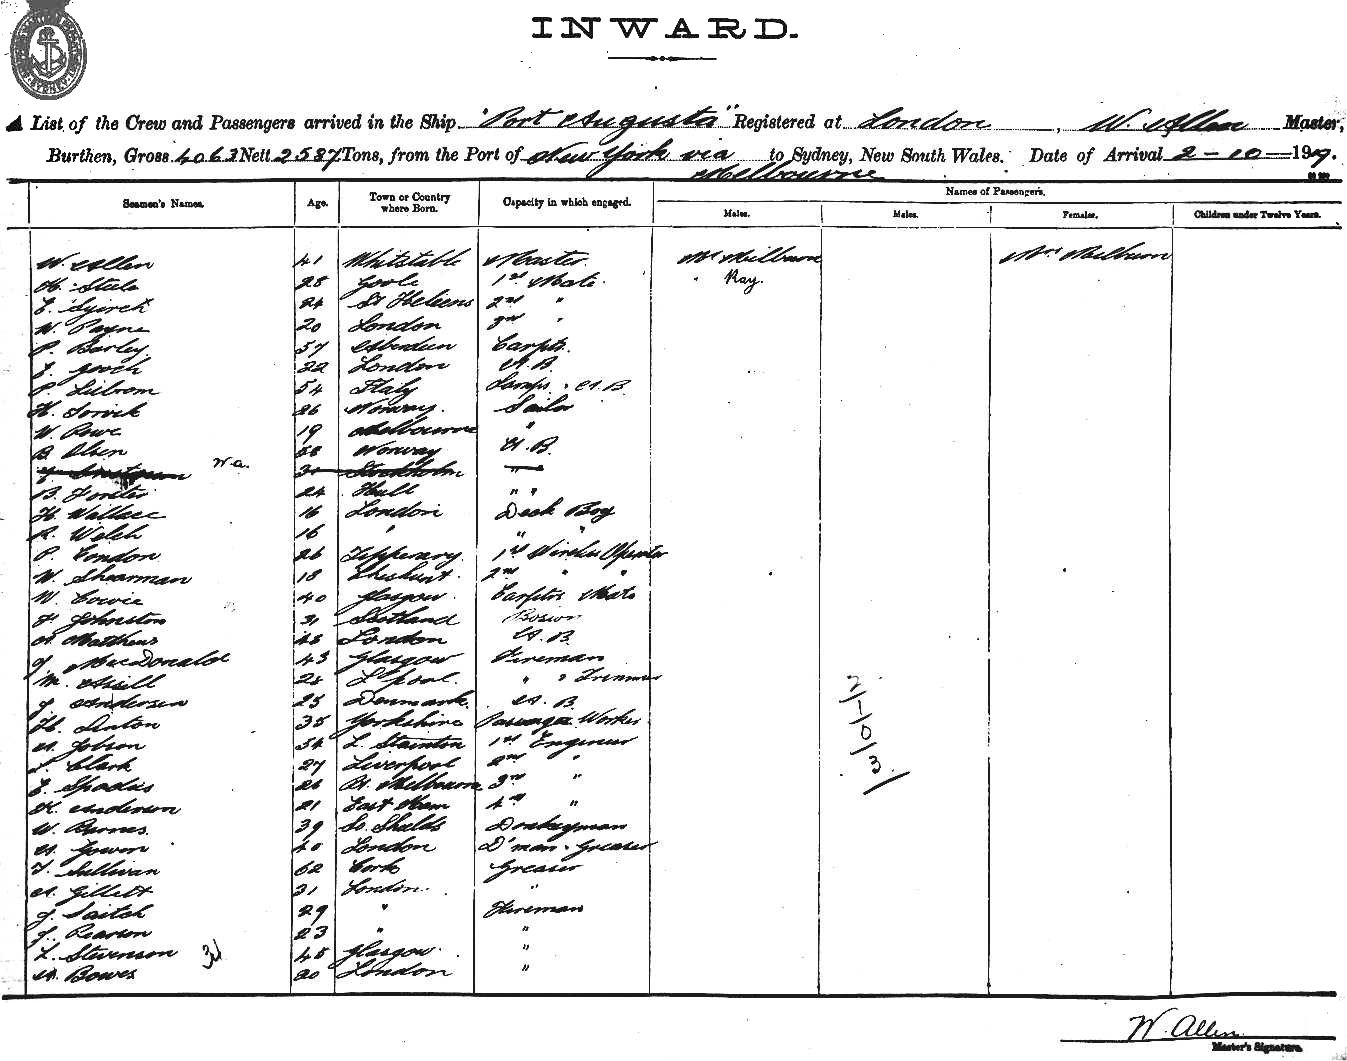 INWARD.
SYDNEY
A List of the Crew and Passengers arrived in the Ship "Port Augusta" Registered at London, W. Allen Master,
Burthen, Gross 4063 Nett 2587 Tons, from the Port of New York via Melbourne to Sydney, New South Wales. Date of Arrival 2-10-1919.
Seamen's Names. Age. Town or Country where Born. Capacity in which engaged. Names of Passengers.
Males. Males. Females. Children under Twelve Years.
W. Allen 41 Whitstable Master Mr Milburn Mrs Milburn
H. Steele 28 Goole 1st Mate. Ray.
E. 24 St Heleens 2nd "
W. Payne 20 London 3rd "
P. Barley 57 Aberdeen Carptr.
J. Gooch 22 London A.B.
P. 54 Italy Lamps. A.B.
H. 26 Norway. Sailor
W. Rowe 19 Melbourne "
B. Olsen 28 Norway A.B.
n.a. Stockholm "
B. Forster 24 Hull " "
H. Wallace 16 London Deck Boy
R. Welch 16 " " "
P. Condon 26 Tipperary. 1st Wireless Operator
W. Shearman 18 Cheshunt. 2nd " "
W. Cowie 40 Glasgow. Carptrs Mate
Johnston 31 Scotland Bosun
A. Matthews 48 London A.B.
J. MacDonald 43 Glasgow Fireman
M. 28 L'pool. " " Trimmer
J. Andersen 25 Denmark. A.B.
H. Linton 35 Yorkshire Passage Worker
A. Jobson 54 L. Stainton 1st Engineer
Clark 27 Liverpool 2nd "
E. 26 Melbourne 3rd "
K. Anderson 21 East Ham 4th "
W. Burns. 39 So. Shields Donkeyman
A. Gowen 40 London D'man. Greaser
T. Sullivan 62 Cork Greaser
A. Gillett 31 London. "
J. Saitch 29 " Fireman
J. Pearson 23 " "
L. Stevenson 48 Glasgow. "
A. Bowes 20 London "
2/1/0/3/
W. Allen.
Master's Signature.